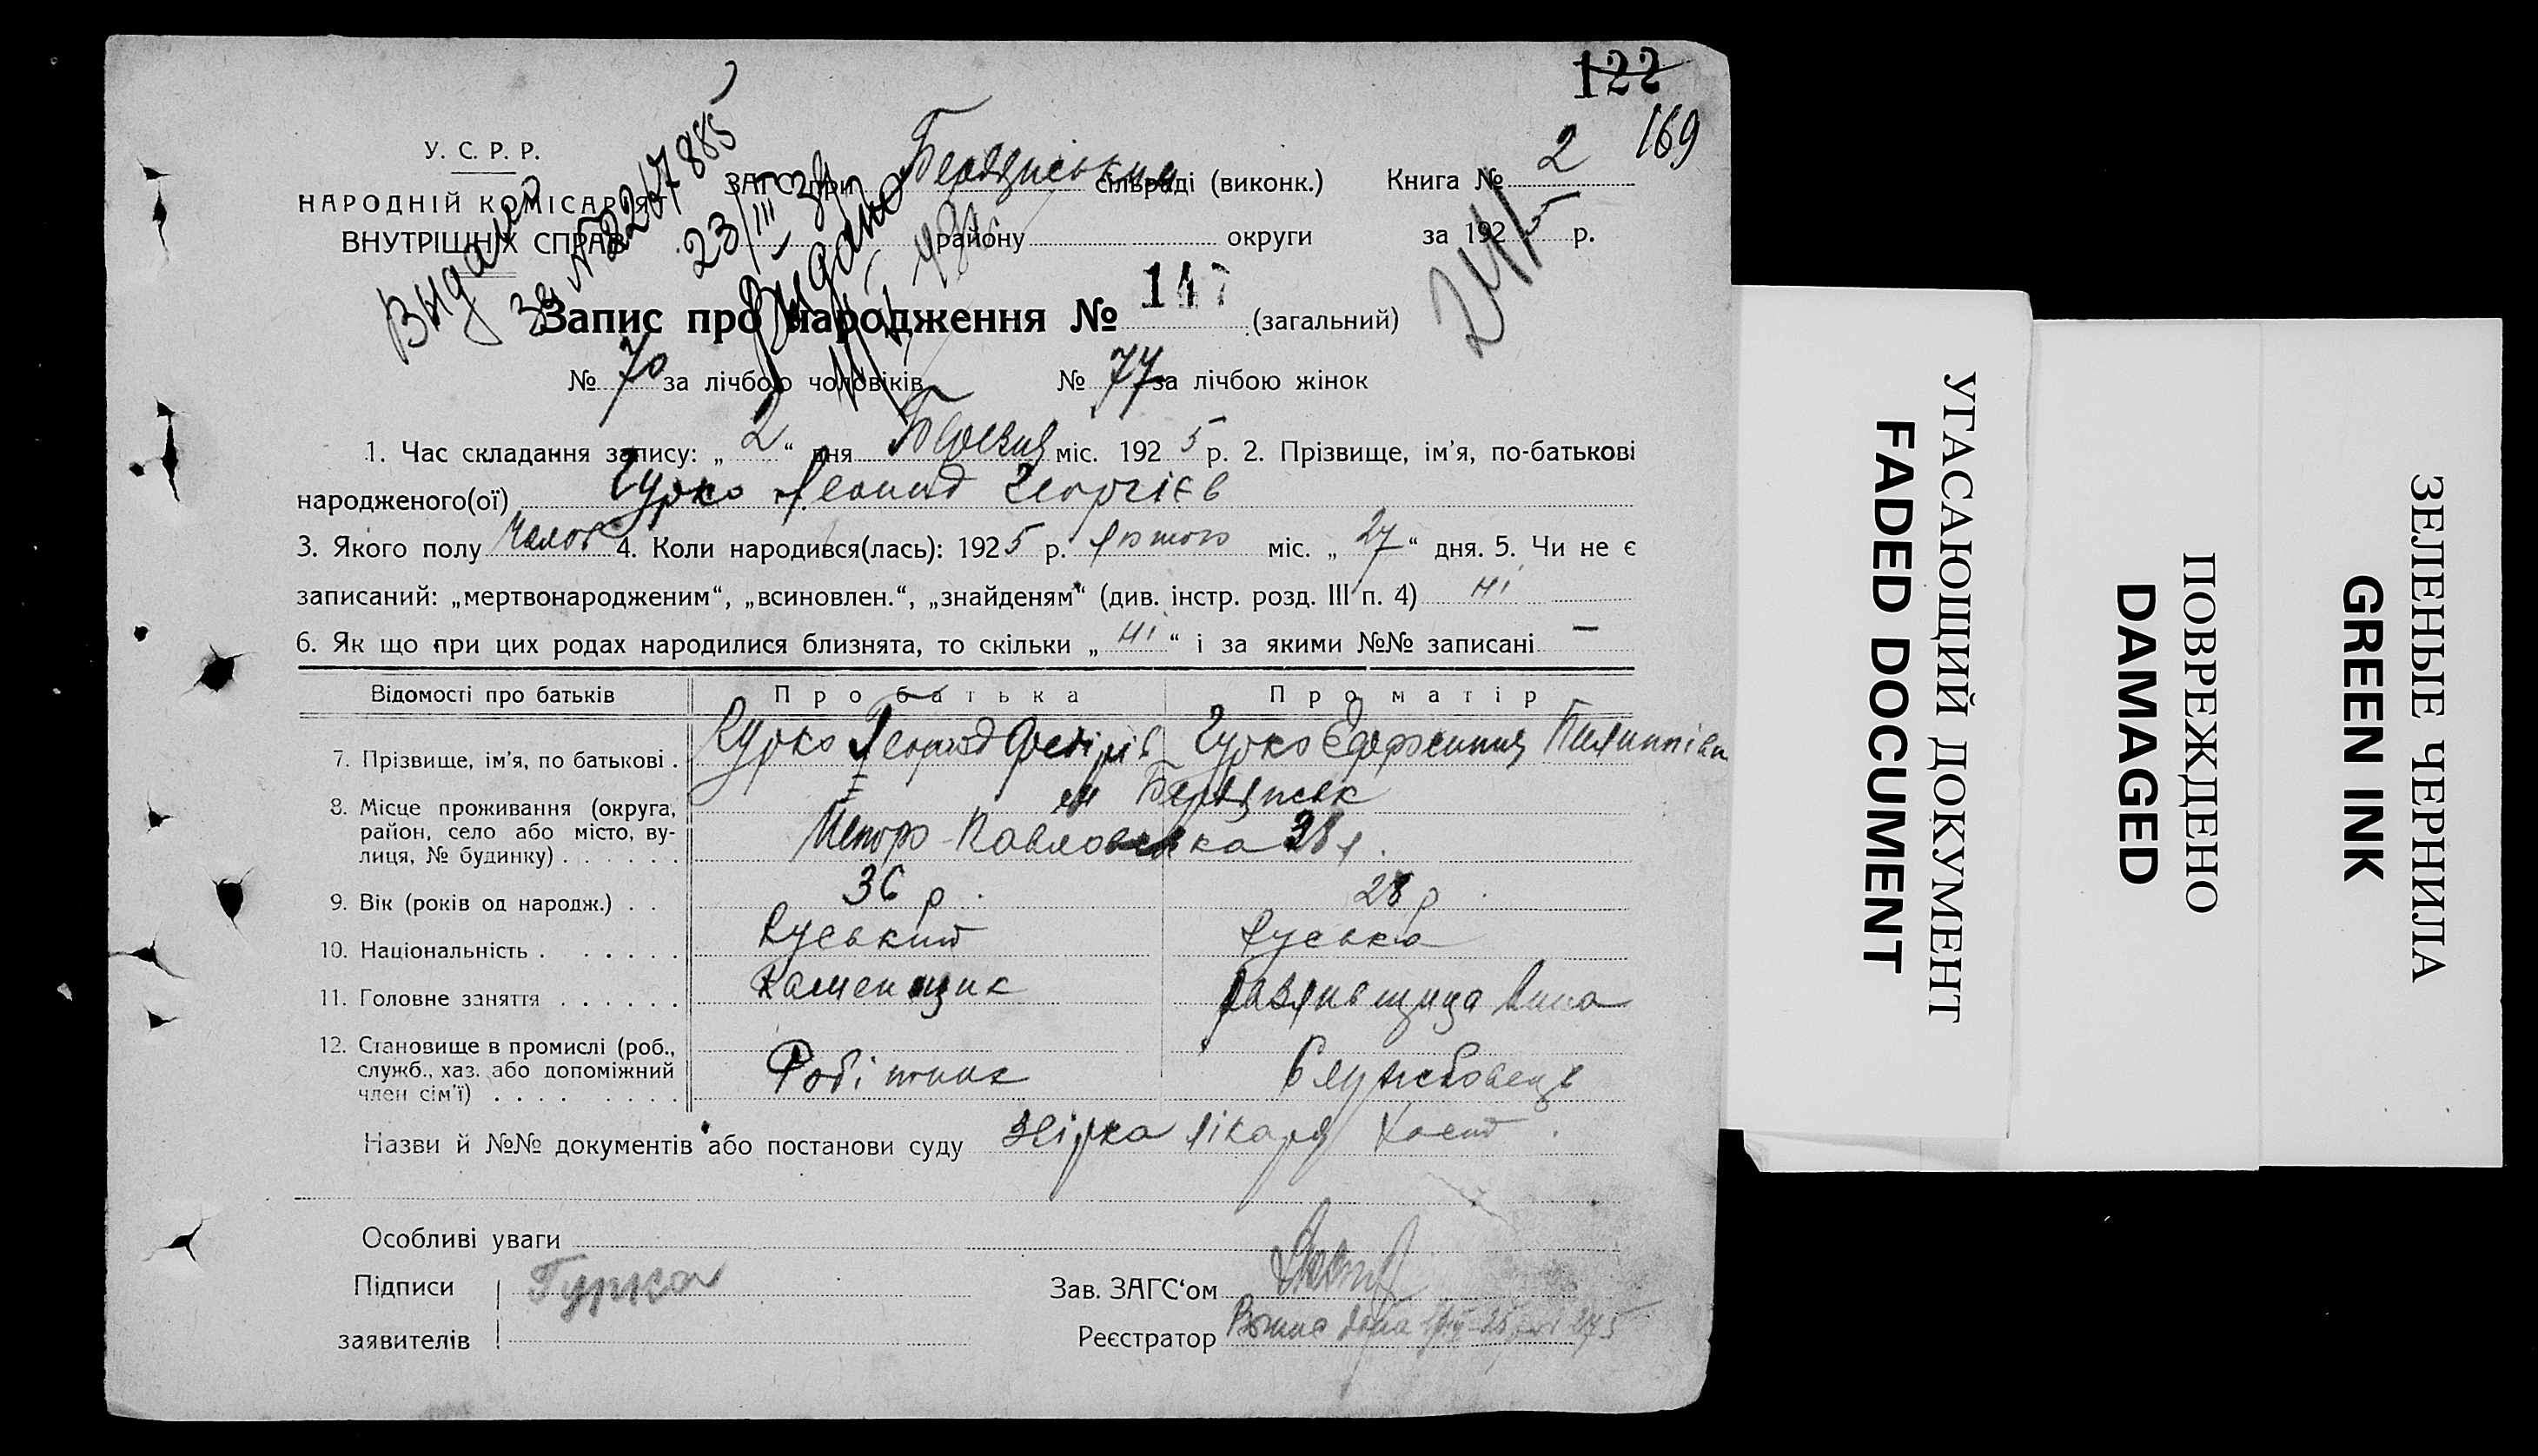 122
169
У. С. Р. Р.
НАРОДНІЙ КОМІСАРІЯТ
ВНУТРІШНІХ СПРАВ
Выдано
23/III
Видано
ЗАГС при Бердянським сільраді (виконк.)
Книга № 2
району округи
за 1925 р.
Запис про народження № 147 (загальний)
№ 70 за лічбою чоловіків № 77 за лічбою жінок
1. Час складання запису: „ 2 “ дня міс. 1925 р. 2. Прізвище, ім’я, по-батькові
народженого(ої) Гурко Леонид Георгієв
3. Якого полу Чолов 4. Коли народився(лась): 1925 р. лютого міс. „ 27 “ дня. 5. Чи не є
записаний: „мертвонародженим“, „всиновлен.“, „знайденям“ (див. інстр. розд. III п. 4) ні
6. Як що при цих родах народилися близнята, то скільки „ ні “ і за якими №№ записані —
Відомості про батьків Про батька Про матір
7. Прізвище, ім’я, по батькові . Гурко Георгій Гурко Єфросиния Пилиппівн
8. Місце проживання (округа, район, село або місто, вулиця, № будинку) . . . . . . м Бердянськ
Петро-Павловська
9. Вік (років од народж.) . . 36 р. 28 р.
10. Національність . . . . . . . Руський Руська
11. Головне заняття . . . . . . Каменщик
12. Становище в промислі (роб., служб., хаз. або допоміжний член сім’ї) . . . . . . . . Робітник Службовець
Назви й №№ документів або постанови суду лікаря
Особливі уваги
Підписи Гурко
Зав. ЗАГС‘ом
заявителів
Реєстратор
УГАСАЮЩИЙ ДОКУМЕНТ
FADED DOCUMENT
ПОВРЕЖДЕНО
DAMAGED
ЗЕЛЕНЫЕ ЧЕРНИЛА
GREEN INK